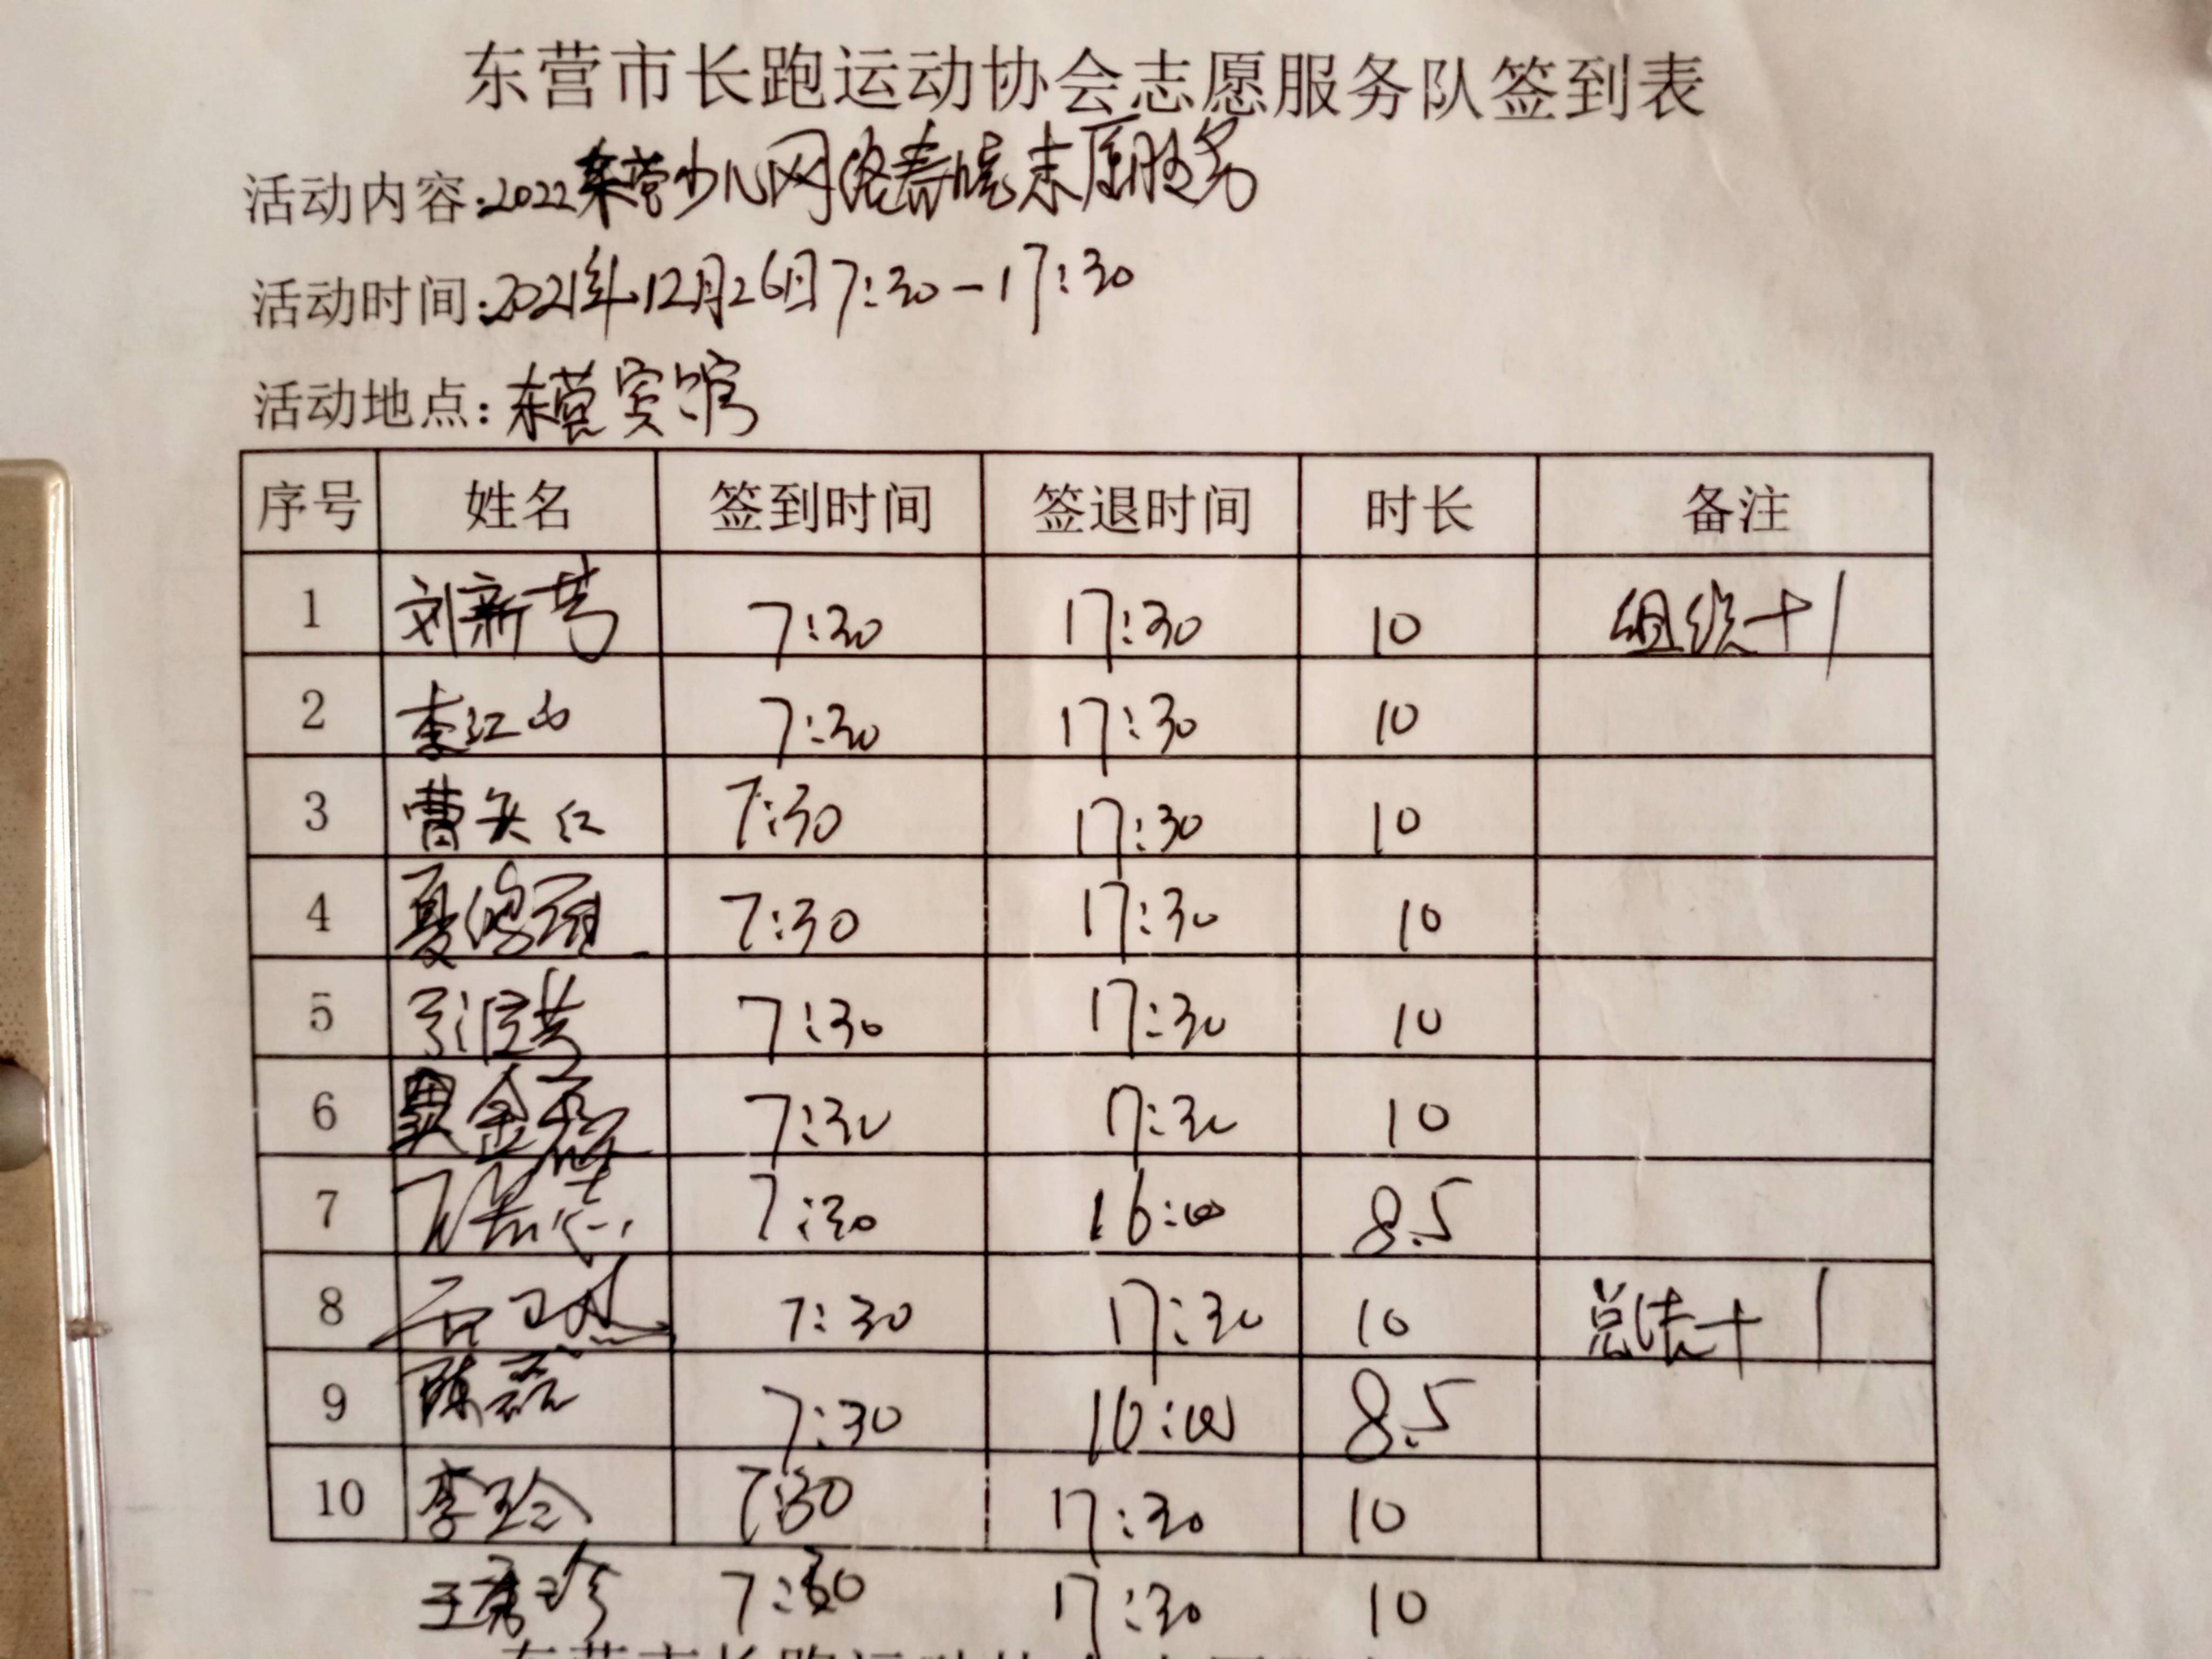 东营市长跑运动协会志愿服务队签到表
活动内容:2022东营少儿网络春晚志愿服务
活动时间:2021年12月26日7:30-17:30
活动地点:东营宾馆
序号 姓名 签到时间 签退时间 时长 备注
1 刘新芳 7:30 17:30 10 组织+1
2 李江山 7:30 17:30 10
3 曹 红 7:30 17:30 10
4 夏 7:30 17:30 10
5 7:30 17:30 10
6 金 7:30 17:30 10
7 7:30 16:00 8.5
8 7:30 17:30 10 总结+1
9 陈磊 7:30 16:00 8.5
10 李玲 7:30 17:30 10
王 珍 7:30 17:30 10
东营市长跑运动协会志愿服